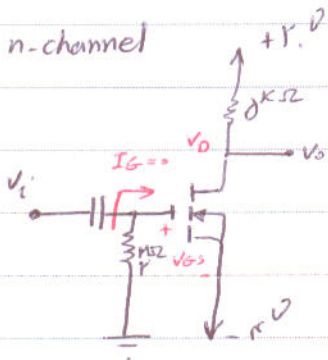 n-channel
+۲۰V
۵KΩ
VD
Vo
IG = ۰
Vi
+
MΩ
۲
VGS
-